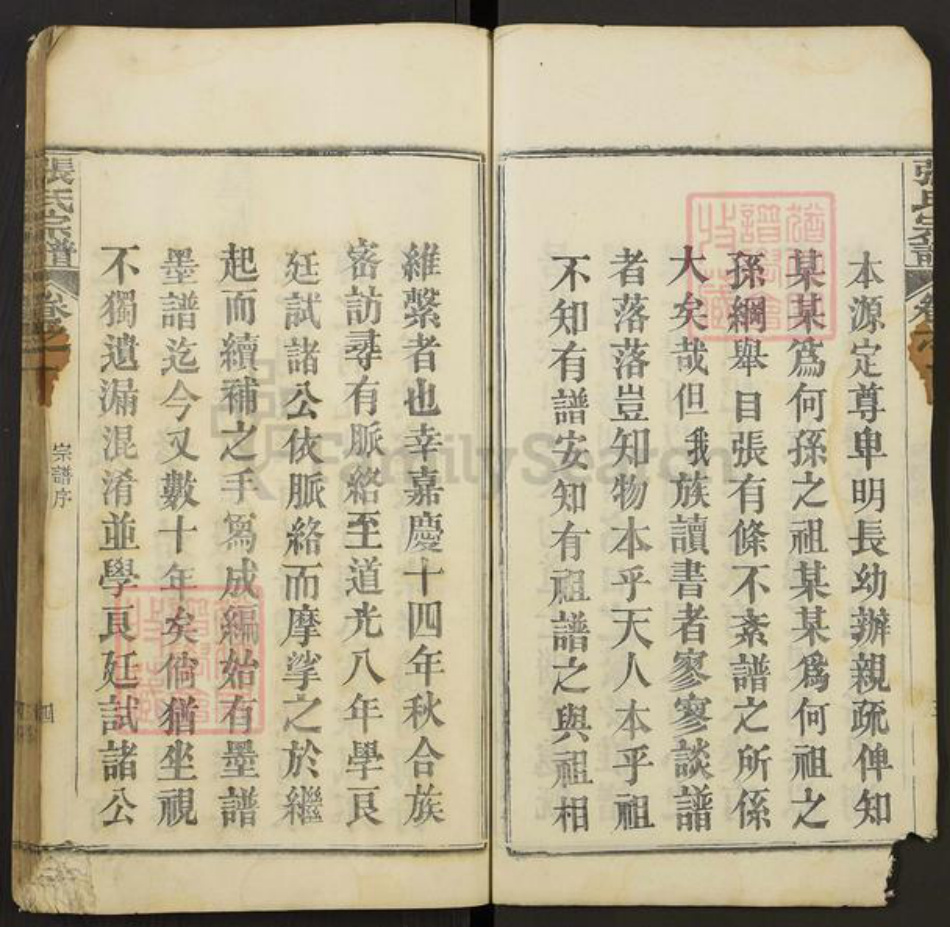 本源定尊卑明長幼辦親疏俾知
某某爲何孫之祖某某爲何祖之
孫綱舉目張有條不紊譜之所係
大矣哉但我族讀書者寥寥談譜
者落落豈知物本乎天人本乎祖
不知有譜安知有祖譜之與祖相
維繫者也幸嘉慶十四年秋合族
密訪尋有脈絡至道光八年學良
廷試諸公依脈絡而摩挲之於繼
起而續補之手寫成編始有墨譜
墨譜迄今又數十年矣倘猶坐視
不獨遺漏混淆並學良廷試諸公
張氏宗譜
宗譜序
四
張氏宗譜
FamilySearch